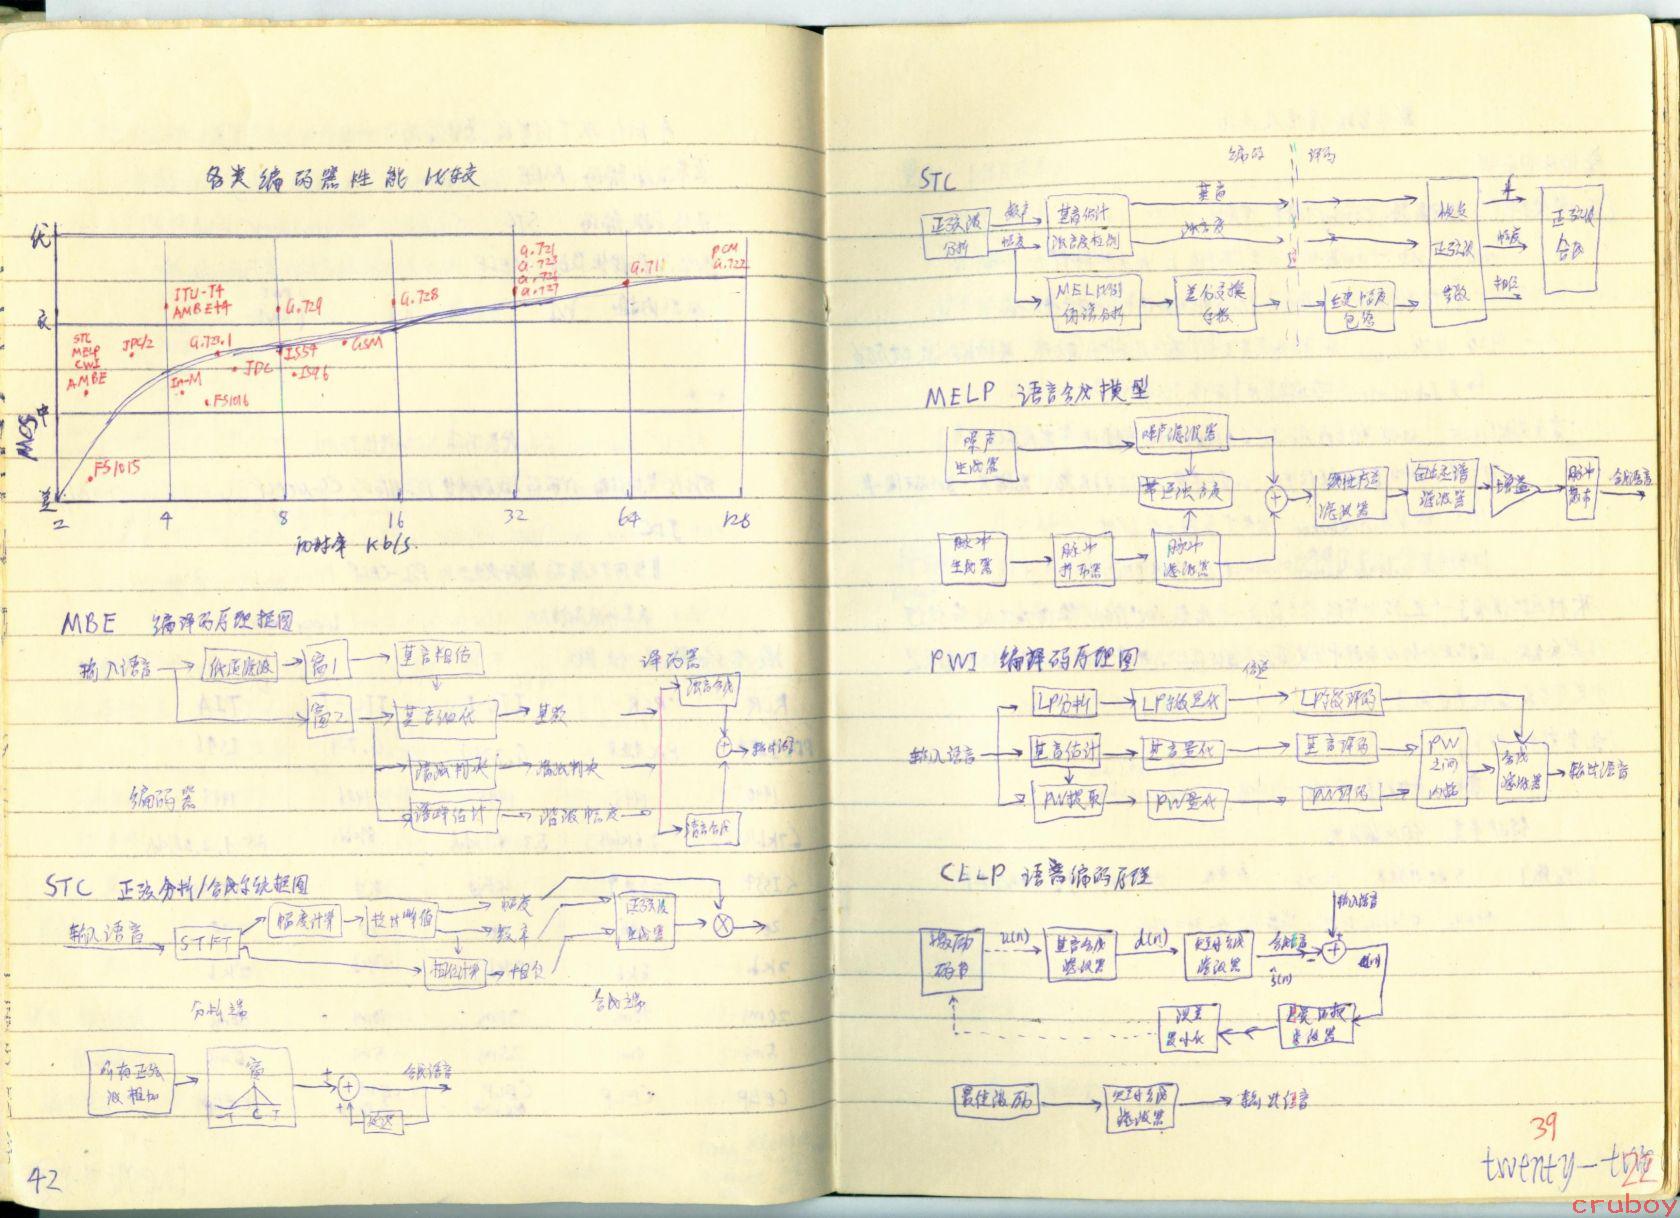 各类编码器性能比较
优
良
中
差
MOS
ITU-T4
AMBE+4
G.729
G.728
G.721
G.723
G.726
G.727
G.711
PCM
G.722
STC
MELP
CWI
AMBE
JPC/2
G.723.1
IS54
GSM
In-M
JDC
IS96
FS1016
FS1015
2 4 8 16 32 64 128
kb/s
MBE 编译码原理框图
输入语音 低通滤波 窗1 基音粗估
译码器
窗2 基音细化
清浊判决 清浊判决
输出语音
编码器
谱峰估计 谐波幅度
STC 正弦分析/合成系统框图
输入语音 STFT 幅度计算 找出峰值 幅度
频率
相位计算 相位
正弦波
生成器
分析端 合成端
所有正弦
波相加
窗
-T 0 T
合成语音
延迟
42
STC
编码 译码
正弦波
分析
频率
幅度
基音估计
浊音度检测
基音
浊音度
正弦波
参数
幅度
相位
正弦波
合成
MELP 语音合成模型
噪声
生成器
噪声滤波器
带通浊音度
脉冲
生成器
脉冲
滤波器
增益
脉冲
散布
合成语音
PWI 编译码原理图
信道
LP分析 LP参数量化 LP参数译码
输入语音 基音估计 基音量化 基音译码
PW
之间
内插
合成
滤波器
输出语音
PW提取 PW量化 PW译码
CELP 语音编码原理
输入语音
激励
码书
u(n)
基音合成
滤波器
d(n)
短时合成
滤波器
合成语音
ŝ(n)
误差
最小化
最佳激励
短时合成
滤波器
输出语音
39
22
cruboy